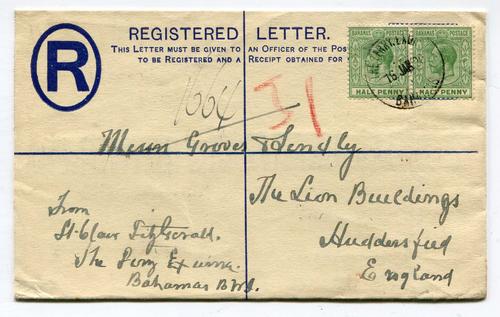 REGISTERED LETTER.
THIS LETTER MUST BE GIVEN TO AN OFFICER OF THE POS
TO BE REGISTERED AND A RECEIPT OBTAINED FOR
R
BAHAMAS POSTAGE
HALF PENNY
BAHAMAS POSTAGE
HALF PENNY
1664
Messrs Groves & Lindly
The Lion Buildings
Huddersfield
England
From
St. Clair FitzGerald.
The Ferry Exuma.
Bahamas B.W.I.